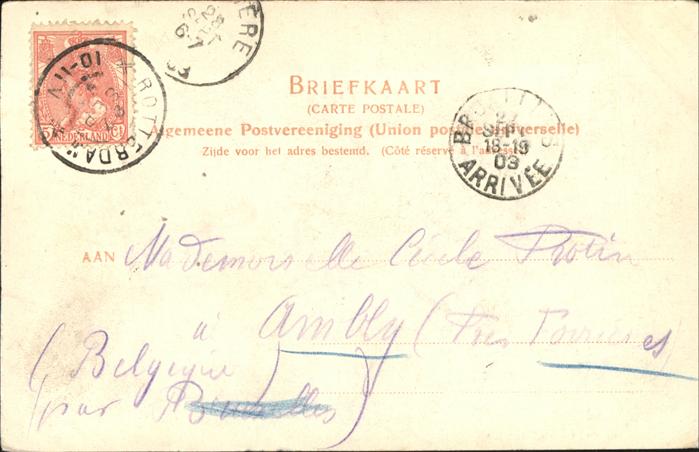 BRIEFKAART
(CARTE POSTALE)
Algemeene Postvereeniging (Union postale universelle)
Zijde voor het adres bestemd. (Côté réservé à l'adresse)
NEDERLAND
ROTTERDAM
10-11 V
6-7
03
BRUXELLES
22
SEPT
18-19
03
ARRIVÉE
AAN Mademoiselle Cécile Protin
à Ambly (Près Forrières)
(Belgique)
(par Bruxelles)